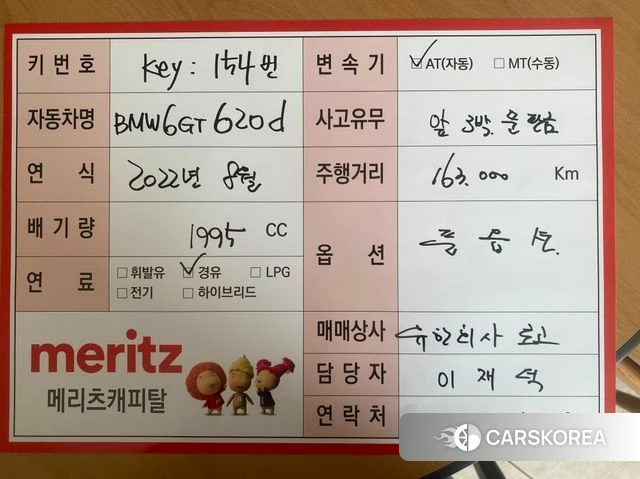 키번호 Key : 154번
변속기 ☑ AT(자동) ☐ MT(수동)
자동차명 BMW6GT 620d
사고유무 앞 3박. 문 판금
연 식 2022년 8월
주행거리 163.000 Km
배기량 1995 CC
옵 션 풀 옵 션.
연 료 ☐ 휘발유 ☑ 경유 ☐ LPG
☐ 전기 ☐ 하이브리드
매매상사 유한회사
담당자 이 재 석
연락처
meritz
메리츠캐피탈
CARSKOREA